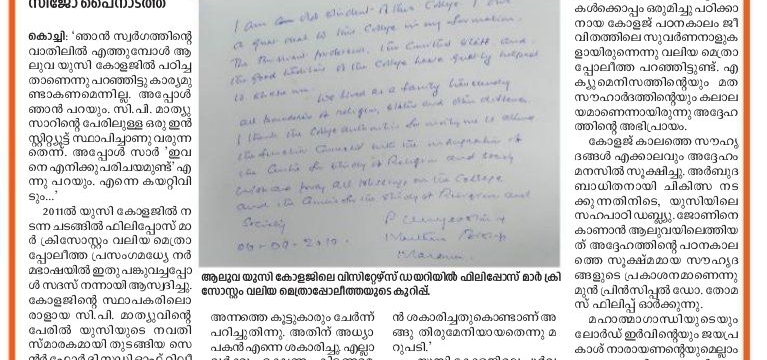 സിജോ പൈനാടത്ത്
കൊച്ചി: ‘ഞാൻ സ്വർഗത്തിന്റെ
വാതിലിൽ എത്തുമ്പോൾ ആ
ലുവ യുസി കോളജിൽ പഠിച്ച
താണെന്നു പറഞ്ഞിട്ടു കാര്യമു
ണ്ടാകണമെന്നില്ല. അപ്പോൾ
ഞാൻ പറയും. സി.പി. മാത്യു
സാറിന്റെ പേരിലുള്ള ഒരു ഇൻ
സ്റ്റിറ്റ്യൂട്ട് സ്ഥാപിച്ചാണു വരുന്ന
തെന്ന്. അപ്പോൾ സാർ 'ഇവ
നെ എനിക്കു പരിചയമുണ്ട്' എ
ന്നു പറയും. എന്നെ കയറ്റിവി
ടും...’
2011ൽ യുസി കോളജിൽ ന
ടന്ന ചടങ്ങിൽ ഫിലിപ്പോസ് മാ
ർ ക്രിസോസ്റ്റം വലിയ മെത്രാ
പ്പോലീത്ത പ്രസംഗമധ്യേ നർ
മഭാഷയിൽ ഇതു പങ്കുവച്ചപ്പോ
ൾ സദസ് നന്നായി ആസ്വദിച്ചു.
കോളജിന്റെ സ്ഥാപകരിലൊ
രാളായ സി.പി. മാത്യുവിന്റെ
പേരിൽ യുസിയുടെ നവതി
സ്മാരകമായി തുടങ്ങിയ സെ
I am an old student of this College. I owe
a great deal to this College in my formation.
The
the good traditions of the College have greatly helped
to shape me.
We lived as a family
all boundaries of religion, status and other differences.
I thank the College authorities for inviting me to attend
the function connected with the inauguration of
the Centre for Study of Religion and Society
pray all blessings on the College
and the Centre for the Study of Religion and
Society
ആലുവ യുസി കോളജിലെ വിസിറ്റേഴ്സ് ഡയറിയിൽ ഫിലിപ്പോസ് മാർ ക്രി
സോസ്റ്റം വലിയ മെത്രാപ്പോലീത്തയുടെ കുറിപ്പ്.
അന്നത്തെ കൂട്ടുകാരും ചേർന്ന്
പറിച്ചുതിന്നു. അതിന് അധ്യാ
പകൻ എന്നെ ശകാരിച്ചു. എല്ലാ
ൻ ശകാരിച്ചതുകൊണ്ടാണ് അ
ങ്ങു തിരുമേനിയായതെന്നു മ
റുപടി.’
കൾക്കൊപ്പം ഒരുമിച്ചു പഠിക്കാ
നായ കോളജ് പഠനകാലം ജീ
വിതത്തിലെ സുവർണനാളുക
ളായിരുന്നെന്നു വലിയ മെത്രാ
പ്പോലീത്ത പറഞ്ഞിട്ടുണ്ട്. എ
ക്യുമെനിസത്തിന്റെയും മത
സൗഹാർദത്തിന്റെയും കലാല
യമാണെന്നായിരുന്നു അദ്ദേഹ
ത്തിന്റെ അഭിപ്രായം.
കോളജ് കാലത്തെ സൗഹൃ
ദങ്ങൾ എക്കാലവും അദ്ദേഹം
മനസിൽ സൂക്ഷിച്ചു. അർബുദ
ബാധിതനായി ചികിത്സ നട
ക്കുന്നതിനിടെ, യുസിയിലെ
സഹപാഠി ഡബ്ല്യു. ജോണിനെ
കാണാൻ ആലുവയിലെത്തിയ
ത് അദ്ദേഹത്തിന്റെ പഠനകാല
ത്തെ സൂക്ഷ്മമായ സൗഹൃദ
ങ്ങളുടെ പ്രകാശനമാണെന്നു
മുൻ പ്രിൻസിപ്പൽ ഡോ. തോമ
സ് ഫിലിപ്പ് ഓർക്കുന്നു.
മഹാത്മാഗാന്ധിയുടെയും
ലോർഡ് ഇർവിന്റെയും ജയപ്ര
കാശ് നാരായണന്റെയുമെല്ലാം